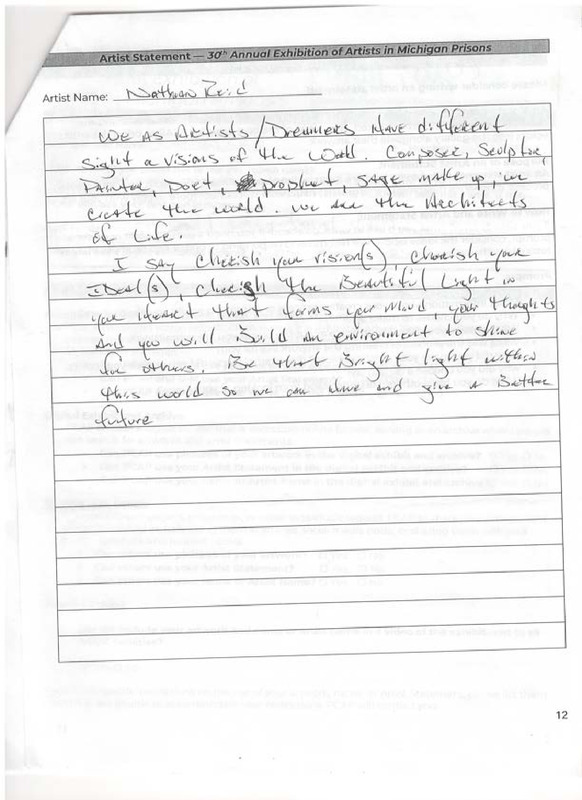 Artist Statement — 30th Annual Exhibition of Artists in Michigan Prisons
Artist Name: Nathan Reid
We As Artists/Dreamers Have different
Sight a visions of the World. Composer, Sculptor,
Painter, Poet, prophet, sage make up, we
create the world. we are the Architects
of Life.
I say Cherish your vision(s), cherish your
IDeal(s), cherish the Beautiful Light in
you that forms your mind, your thoughts
And you will Build an environment to shine
for others. Be that Bright light within
this world so we can have and give a Better
future
12